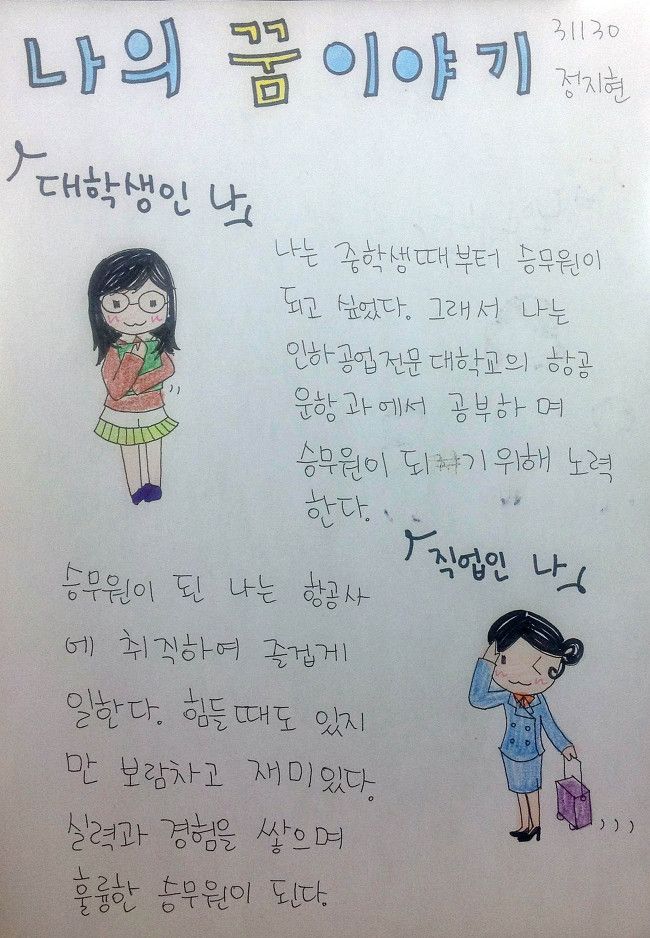 나의 꿈 이야기
31130
정지현
대학생인 나
나는 중학생때부터 승무원이
되고 싶었다. 그래서 나는
인하공업전문대학교의 항공
운항과에서 공부하며
승무원이 되기위해 노력
한다.
직업인 나
승무원이 된 나는 항공사
에 취직하여 즐겁게
일한다. 힘들때도 있지
만 보람차고 재미있다.
실력과 경험을 쌓으며
훌륭한 승무원이 된다.